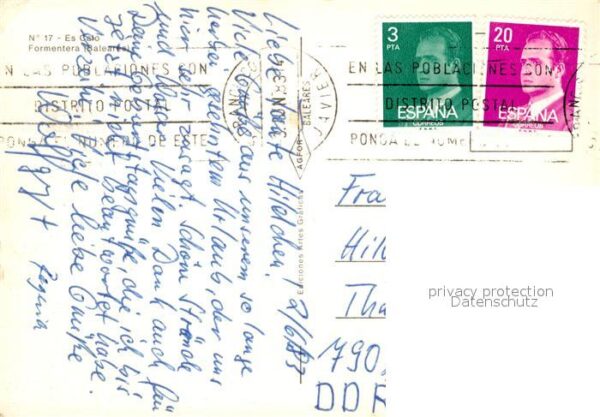 Nº 17 - Es Caló
Formentera (Baleares)
EN LAS POBLACIONES CON
DISTRITO POSTAL
PONGA EL NUMERO DE ESTE
BALEARES
EN LAS POBLACIONES CON
DISTRITO POSTAL
PONGA EL NUME
3
PTA
ESPAÑA
CORREOS
20
PTA
ESPAÑA
CORREOS
Liebe Tante Hildchen! 2/6/83
Viele Grüße aus unserem so lange
herbei gesehntem Urlaub, der uns
hier sehr zusagt. Schöne Strände
und Wasser. Vielen Dank auch für
Deine Geburtstagsgrüße, die ich bis
jetzt nicht beantwortet habe.
Viele liebe Grüße
Regina
Ediciones Artes Gráficas
AGFOR
Fra
Hil
Tha
790
DDR
privacy protection
Datenschutz